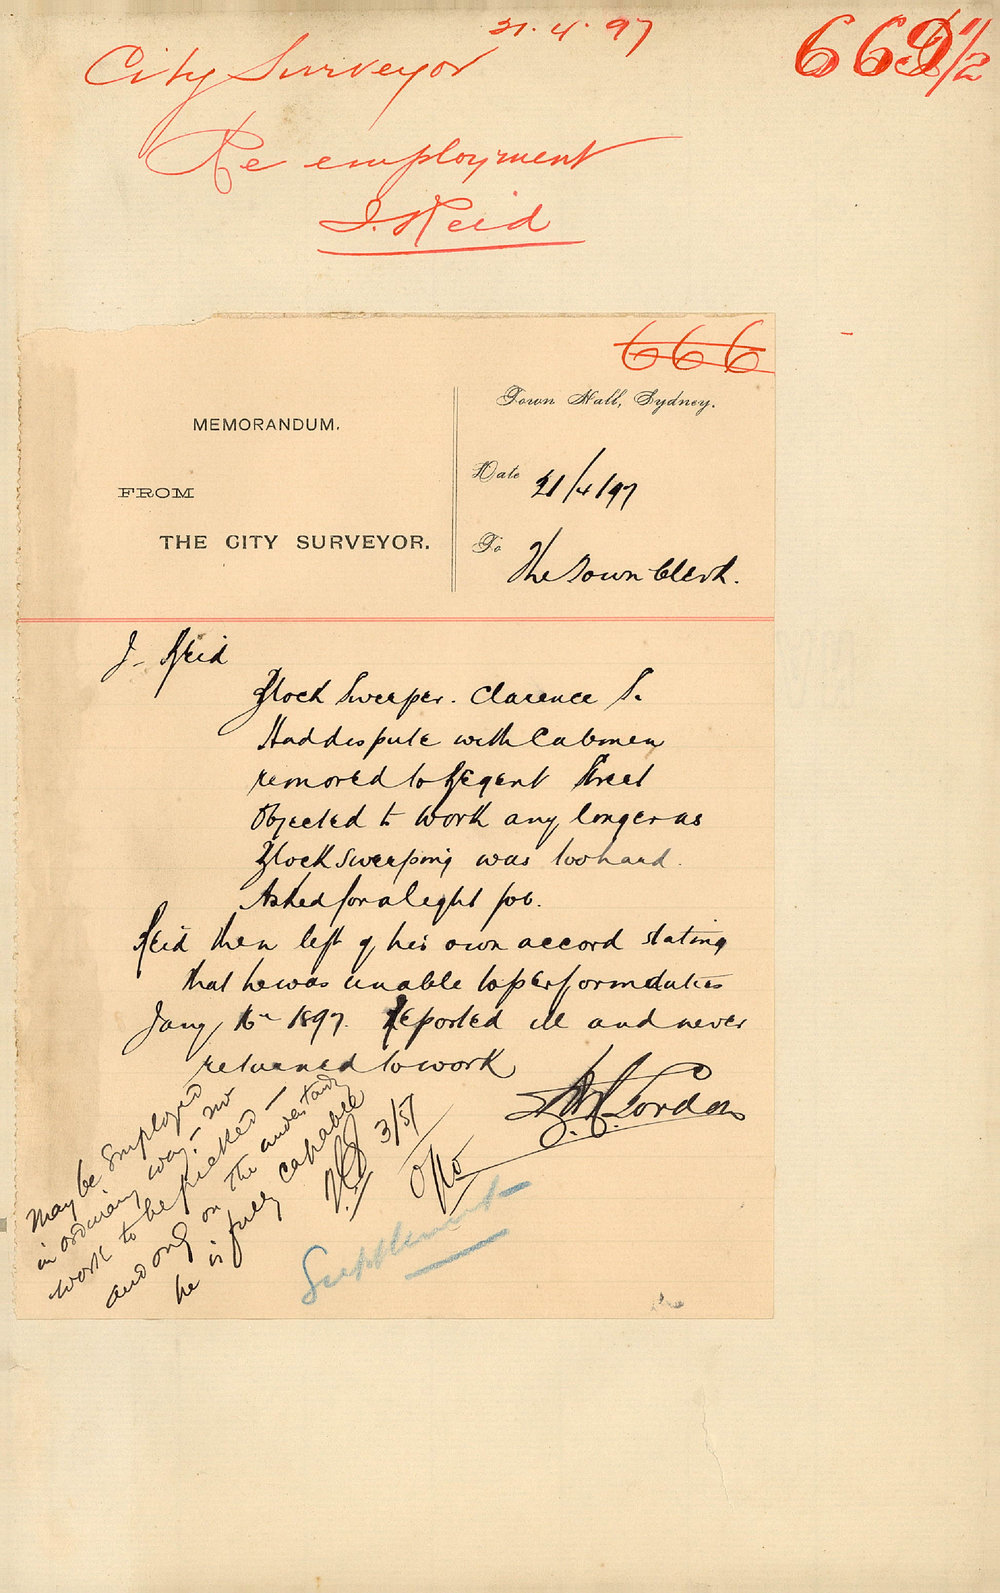 21.4.97
City Surveyor
Re employment
J. Reid
666
Town Hall, Sydney.
MEMORANDUM.
Date 21/4/97
FROM
THE CITY SURVEYOR.
To The Town Clerk.
J. Reid
Block Sweeper. Clarence S.
Had dispute with Cabmen
removed to Regent Street
Objected to work any longer as
Block sweeping was too hard.
Asked for a light job.
Reid then left of his own accord stating
that he was unable to perform duties
Jany 16th 1897. Reported ill and never
returned to work
Gordon
May be employed
in ordinary way - no
work to be picked -
and only on the understandg
he is fully capable
3/5/
Supplement